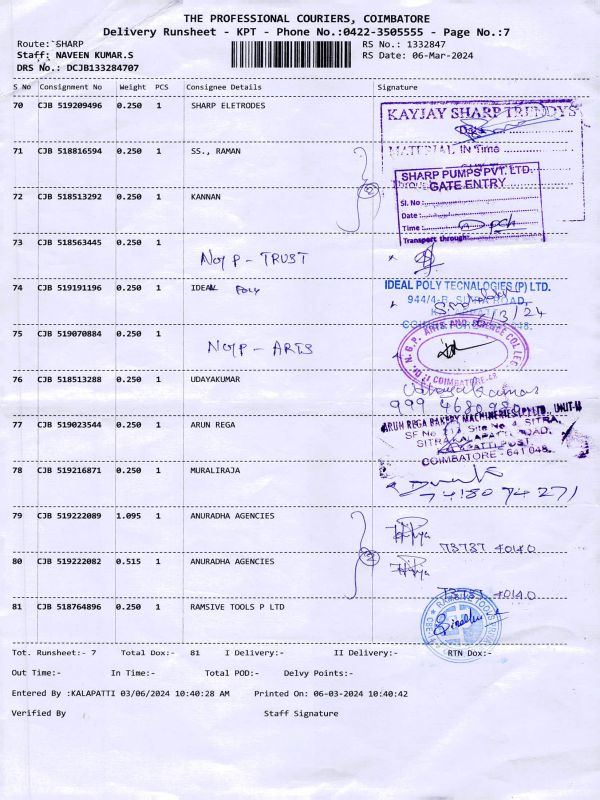 THE PROFESSIONAL COURIERS, COIMBATORE
Delivery Runsheet - KPT - Phone No.:0422-3505555 - Page No.:7
Route: SHARP
RS No.: 1332847
Staff: NAVEEN KUMAR.S
RS Date: 06-Mar-2024
DRS No.: DCJB133284707
S No Consignment No Weight PCS Consignee Details Signature
70 CJB 519209496 0.250 1 SHARP ELETRODES
KAYJAY SHARP TRENDYS
Date
MATERIAL IN Time
71 CJB 518816594 0.250 1 SS., RAMAN
2
SHARP PUMPS PVT. LTD.
GATE ENTRY
72 CJB 518513292 0.250 1 KANNAN
Sl. No :
Date :
Time :
Transport through:
73 CJB 518563445 0.250 1
NGP - TRUST
74 CJB 519191196 0.250 1 IDEAL Poly
IDEAL POLY TECNALOGIES (P) LTD.
944/4-B,
/3/24
75 CJB 519070884 0.250 1
NGP - ARTS
DR. N.G.P. ARTS AND SCIENCE COLLEGE
COIMBATORE-48
76 CJB 518513288 0.250 1 UDAYAKUMAR
Udhayakumar
999 4680980
77 CJB 519023544 0.250 1 ARUN REGA
ARUN REGA BAKERY MACHINERIES (P) LTD., UNIT-II
SF No 214 Site No 4, SITRA,
SITRA KALAPATTI ROAD,
KALAPATTI POST,
COIMBATORE - 641 048.
78 CJB 519216871 0.250 1 MURALIRAJA
74180 74271
79 CJB 519222089 1.095 1 ANURADHA AGENCIES
73737 40140
2
80 CJB 519222082 0.515 1 ANURADHA AGENCIES
73737 40140
81 CJB 518764896 0.250 1 RAMSIVE TOOLS P LTD
Tot. Runsheet:- 7 Total Dox:- 81 I Delivery:- II Delivery:- RTN Dox:-
Out Time:- In Time:- Total POD:- Delvy Points:-
Entered By :KALAPATTI 03/06/2024 10:40:28 AM Printed On: 06-03-2024 10:40:42
Verified By Staff Signature